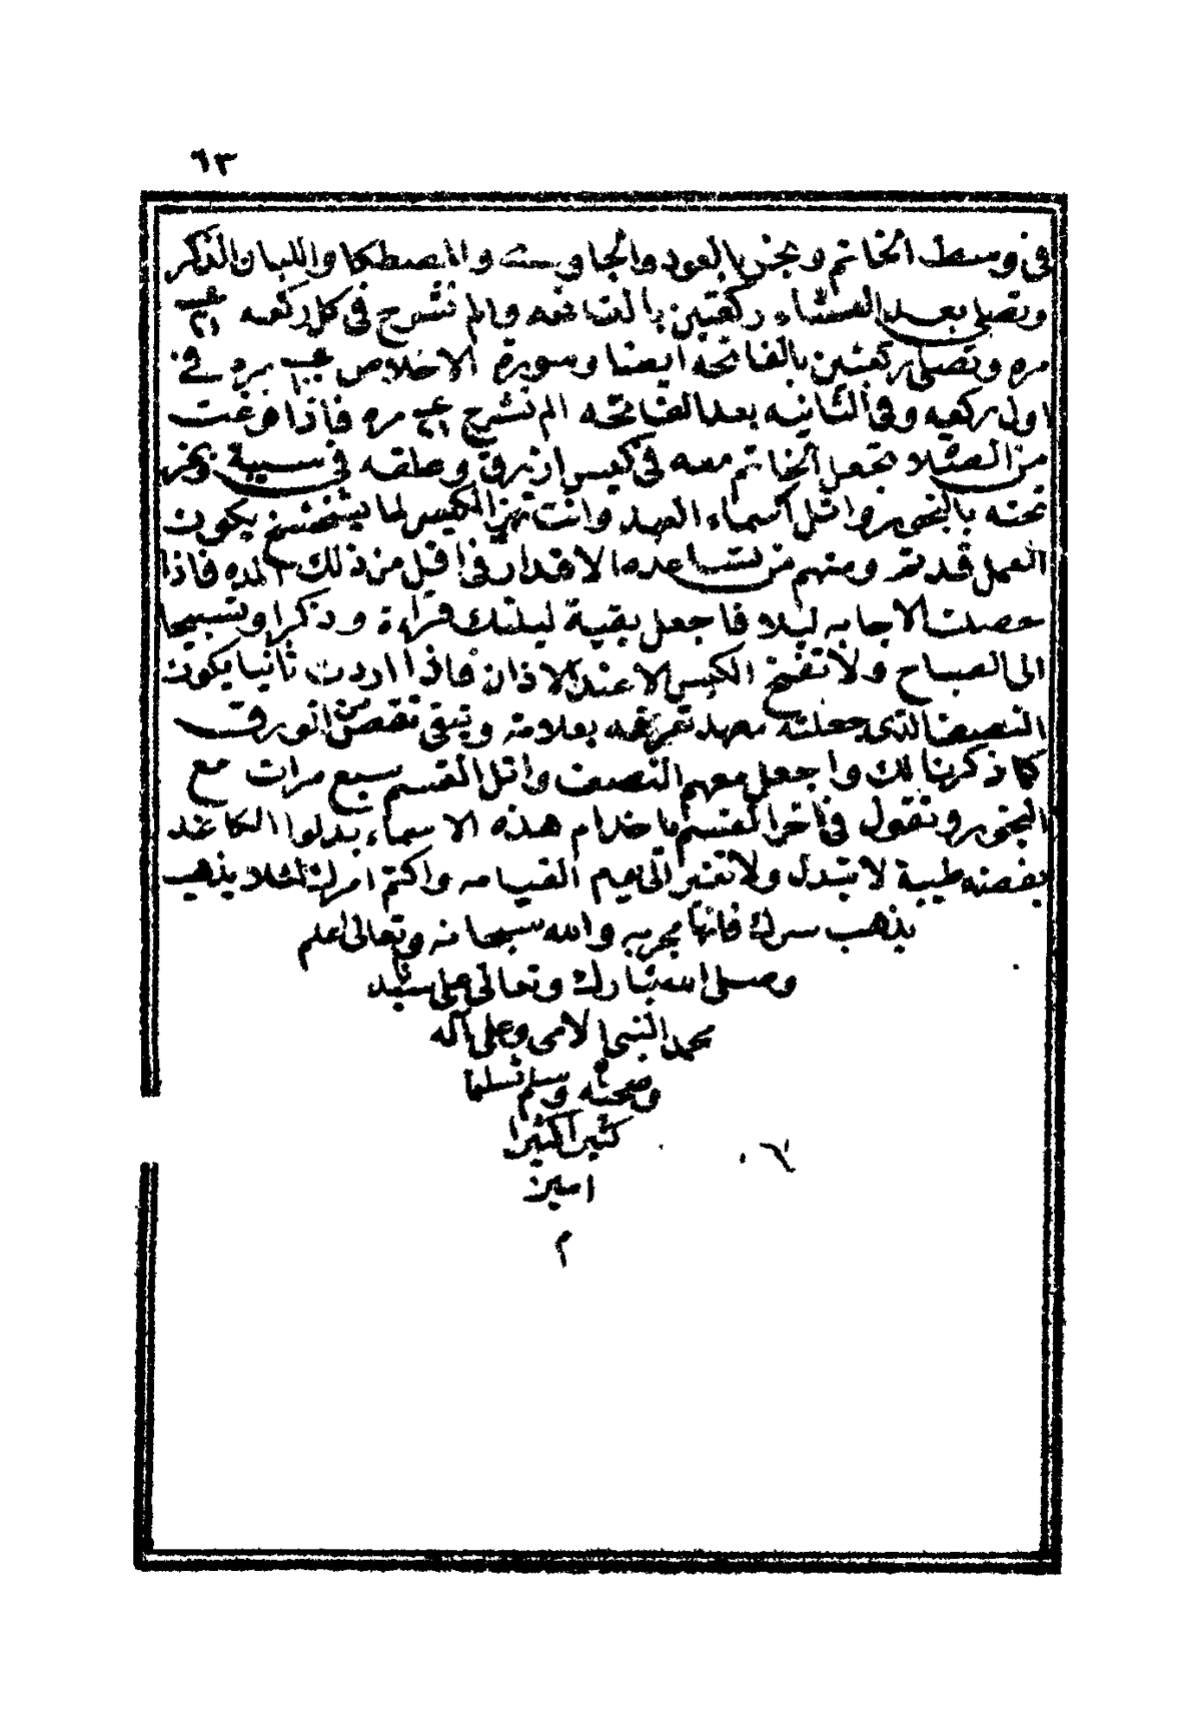 ٦٣
في وسط الخاتم وبخر بالعود والجاوي والمصطكا واللبان الذكر
وتصلي بعد العشاء ركعتين بالفاتحه والم نشرح في كل ركعه ٢١
مره وتصلي ركعتين بالفاتحة ايضا وسورة الاخلاص مره في
اول ركعه وفي الثانيه بعد الفاتحه الم نشرح ٢١ مره فاذا فرغت
من الصلاه تجعل الخاتم معه في كيس ازرق وعلقه في سيبة وبخر
تحته بالبخور واتل اسماء العهد وانت تهز الكيس لما يتخشخش يكون
العمل قد تم ومنهم من تساعده الاقدار في اقل من ذلك المده فاذا
حصلت الاجابه ليلا فاجعل بقية ليلتك قراءة وذكرا وتسبيحا
الى الصباح ولا تفتح الكيس الا عند الاذان فاذا اردت ثانيا يكون
النصف الذي جعلته معهد تمر غه بعلامة وتبقى تقص من الورق
كما ذكرنا لك واجعل معهم النصف واتل القسم سبع مرات مع
البخور وتقول في اخر القسم يا خدام هذه الاسماء بدلوا الكاغد
بفضه طيبة لا تتبدل ولا تتغير الى يوم القيامه واكتم امرك لئلا يذهب
يذهب سرك فانها مجربه والله سبحانه وتعالى اعلم
وصلى الله تبارك وتعالى على سيدنا
محمد النبي الامي وعلى آله
وصحبه وسلم تسليما
كثيرا كثيرا
امين
م